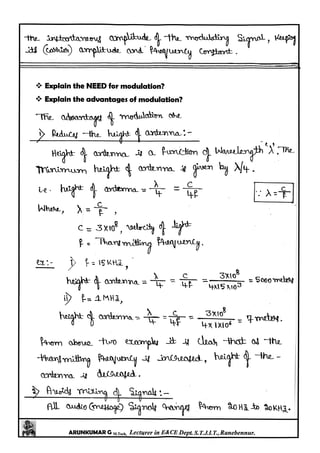 the instantaneous amplitude of the modulating Signal, Keeping
its (carrier) amplitude and frequency Constant.
❖ Explain the NEED for modulation?
❖ Explain the advantages of modulation?
The advantages of modulation are
1) Reduces the height of antenna:-
Height of antenna is a function of Wavelength 'λ'. The
minimum height of antenna is given by λ/4.
i.e. height of antenna = λ/4 = C/4f
∵ λ = C/f
Where, λ = C/f,
C = 3X10⁸, velocity of light
f = Transmitting frequency.
Ex:- i) f = 15KHz,
height of antenna = λ/4 = C/4f = 3X10⁸/4X15X10³ = 5000 meters
ii) f = 1MHz,
height of antenna = λ/4 = C/4f = 3X10⁸/4X1X10⁶ = 7 meters.
From above two examples it is clear that as the
transmitting frequency is increased, height of the
antenna is decreased.
2) Avoids mixing of Signals:-
All audio (message) Signals ranges from 20HZ to 20KHZ.
ARUNKUMAR G M.Tech, Lecturer in E&CE Dept. S.T.J.I.T., Ranebennur.